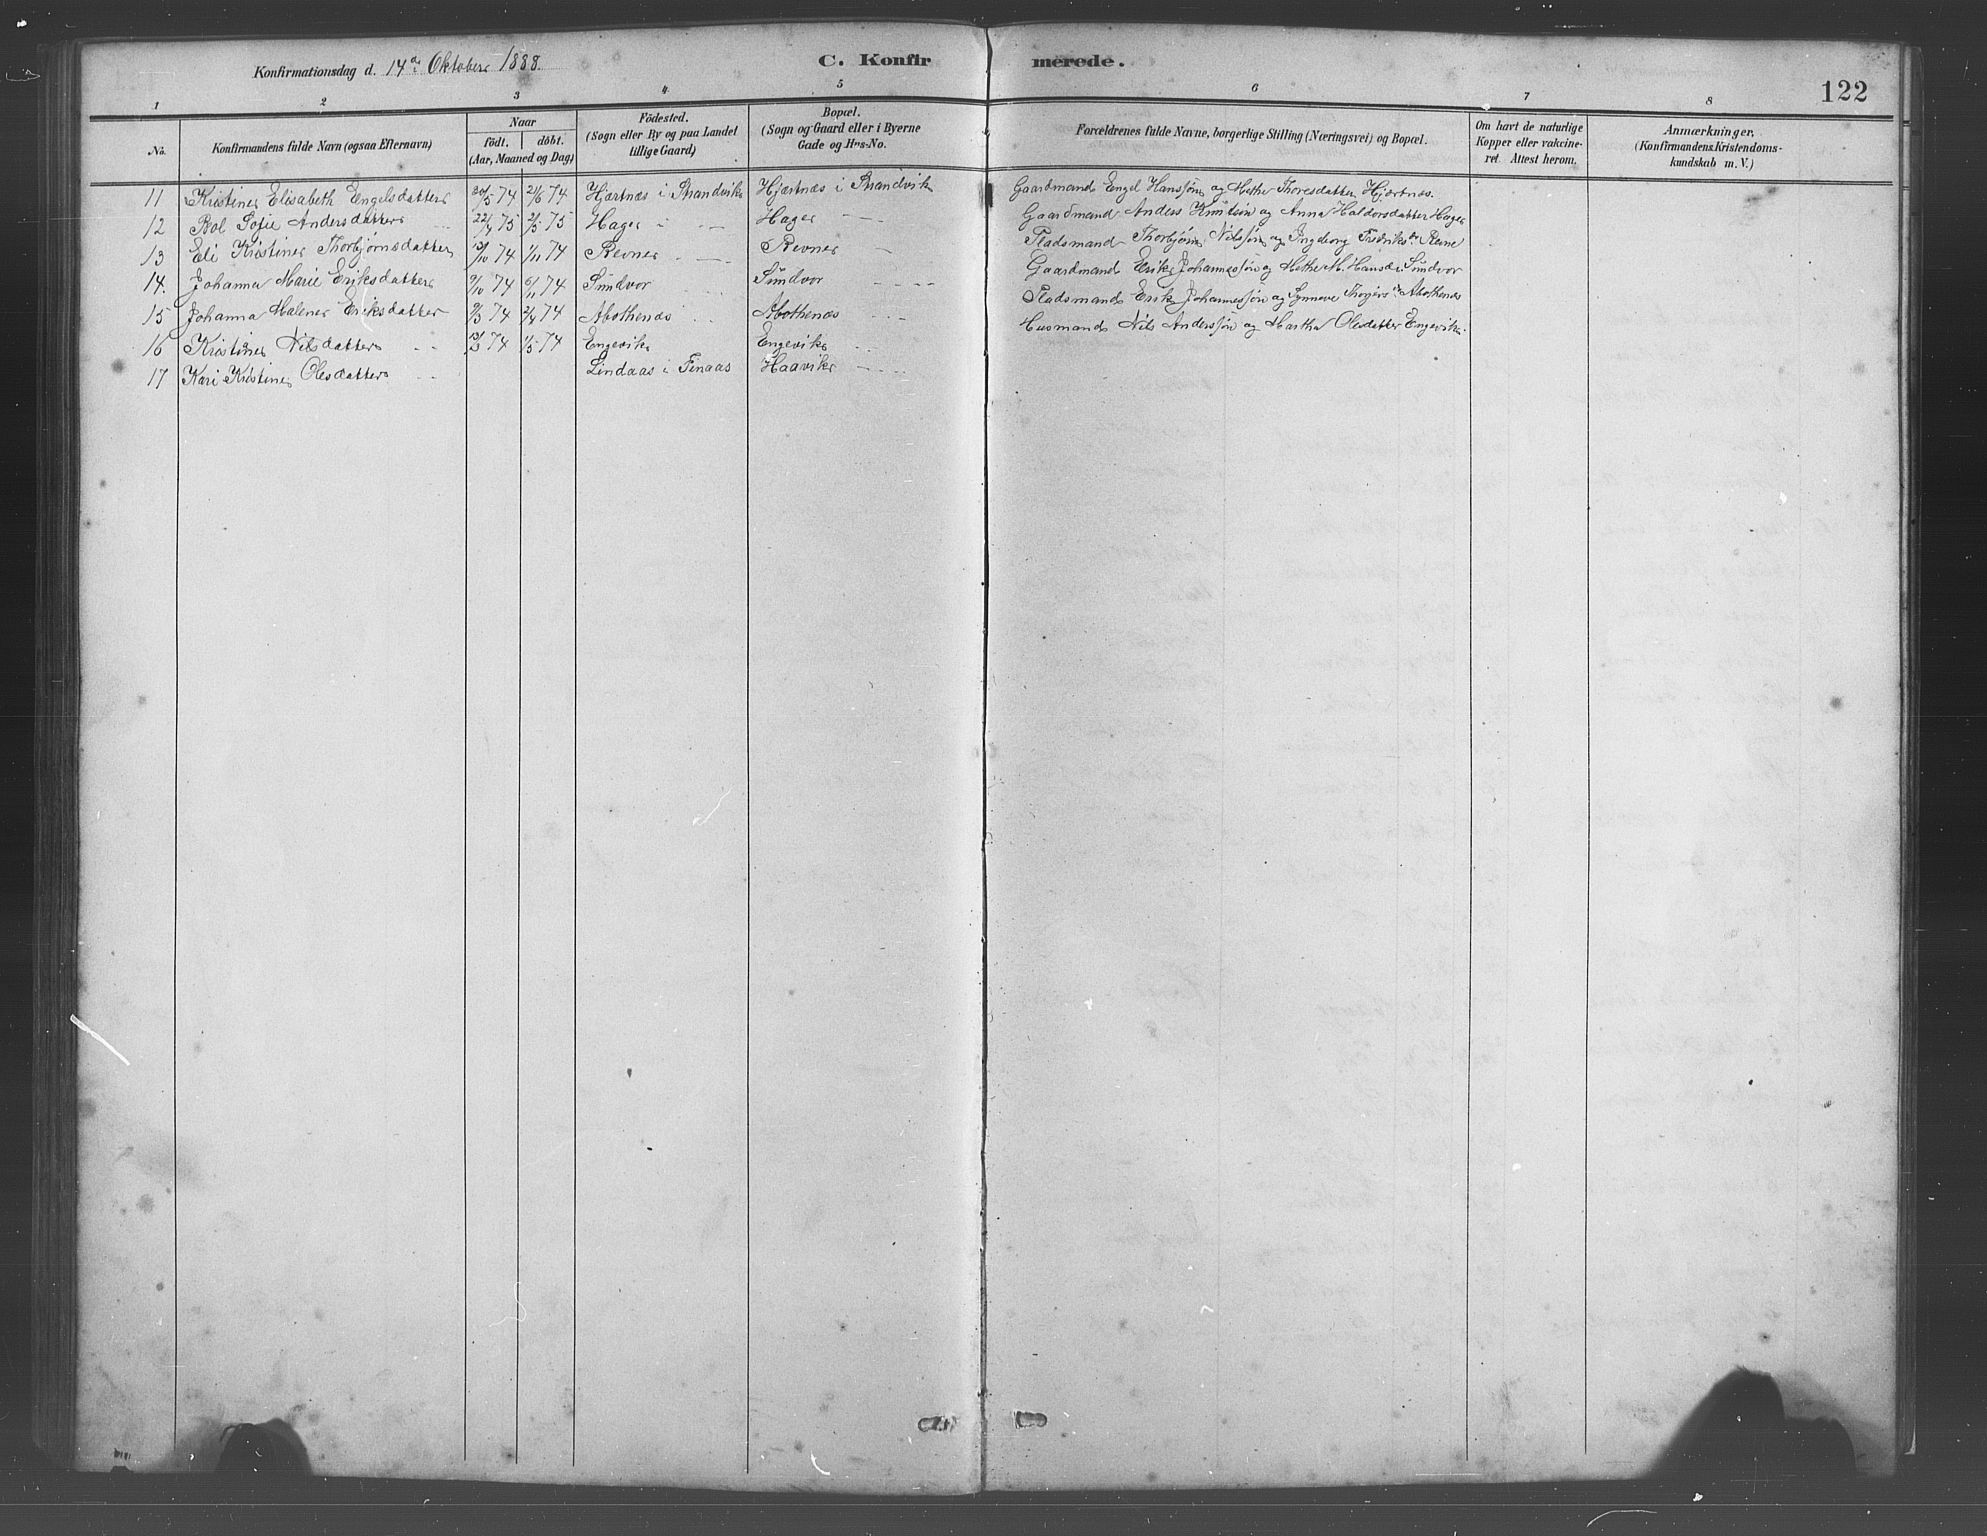 Konfirmationsdag d. 14de Oktober 1888. C. Konfirmerede. 122
1 2 3 4 5 6 7 8
No. Konfirmandens fulde Navn (ogsaa Efternavn) Naar födt. döbt. (Aar, Maaned og Dag) Födested. (Sogn eller By og paa Landet tillige Gaard) Bopæl. (Sogn og Gaard eller i Byerne Gade og Hus-No. Forældrenes fulde Navne, borgerlige Stilling (Næringsvei) og Bopæl. Om havt de naturlige Kopper eller vakcineret. Attest herom. Anmærkninger. (Konfirmandens Kristendomskundskab m. V.)
11 Kristine Elisabeth Engelsdatter 20/5 74 21/6 74 Hjærtnæs i Strandvik Hjærtnæs i Strandvik Gaardmand Engel Hanssøn og Methe Thoresdatter Hjærtnæs.
12 Bol Sofie Andersdatter 22/4 75 2/5 75 Hager Hager Gaardmand Anders Knutsøn og Anna Haldorsdatter Hager
13 Eli Kristine Thorbjørnsdatter 13/10 74 1/11 74 Revne Revne Pladsmand Thorbjørn Nilssøn og Ingeborg Fredriksdr Revne
14. Johanna Marie Eriksdatter 9/10 74 6/11 74 Sundvor Sundvor Gaardmand Erik Johannessøn og Methe M. Hansdr Sundvor
15 Johanna Malene Eriksdatter 9/3 74 2/4 74 Abothenæs Abothenæs Pladsmand Erik Johannessøn og Synneve Abothenæs
16 Kristine Nilsdatter 13/3 74 1/5 74 Engevik Engevik Husmand Nils Anderssøn og Martha Olesdatter Engevik.
17 Kari Kristine Olesdatter Lindaas i Finaas Haavik